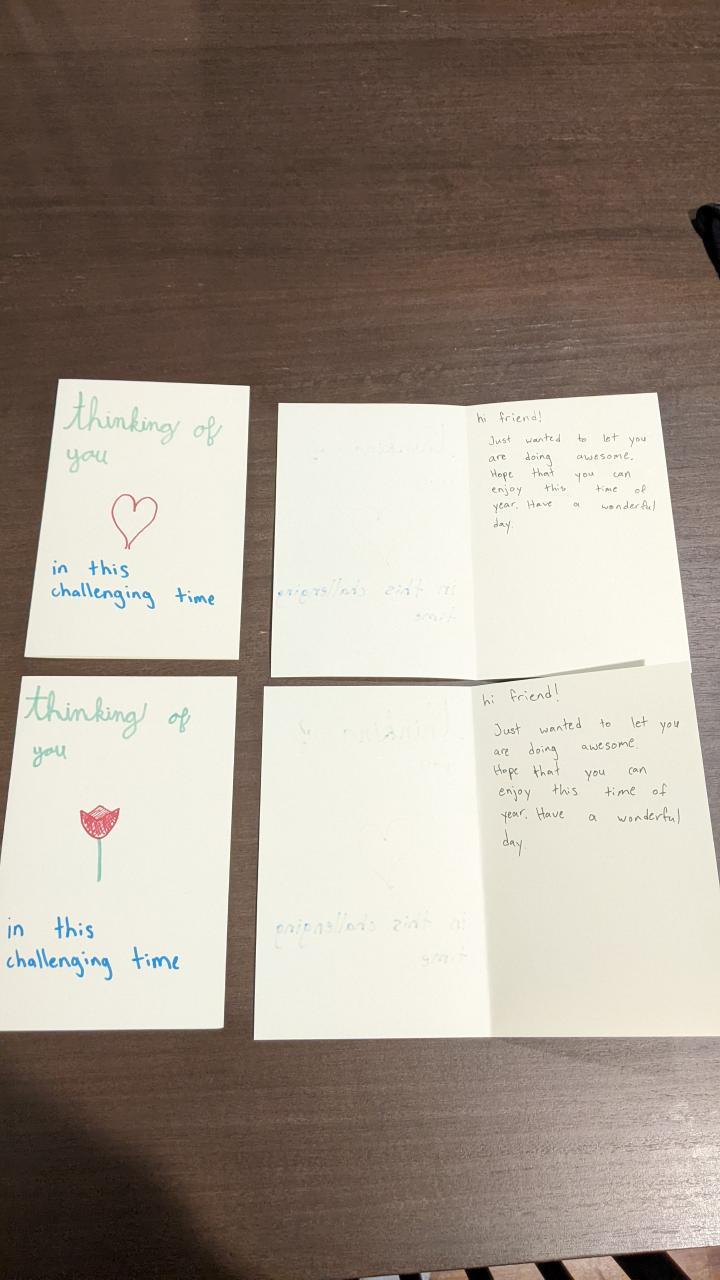 thinking of
you
in this
challenging time
hi friend!
Just wanted to let you
are doing awesome.
Hope that you can
enjoy this time of
year. Have a wonderful
day.
thinking of
you
in this
challenging time
hi friend!
Just wanted to let you
are doing awesome.
Hope that you can
enjoy this time of
year. Have a wonderful
day.